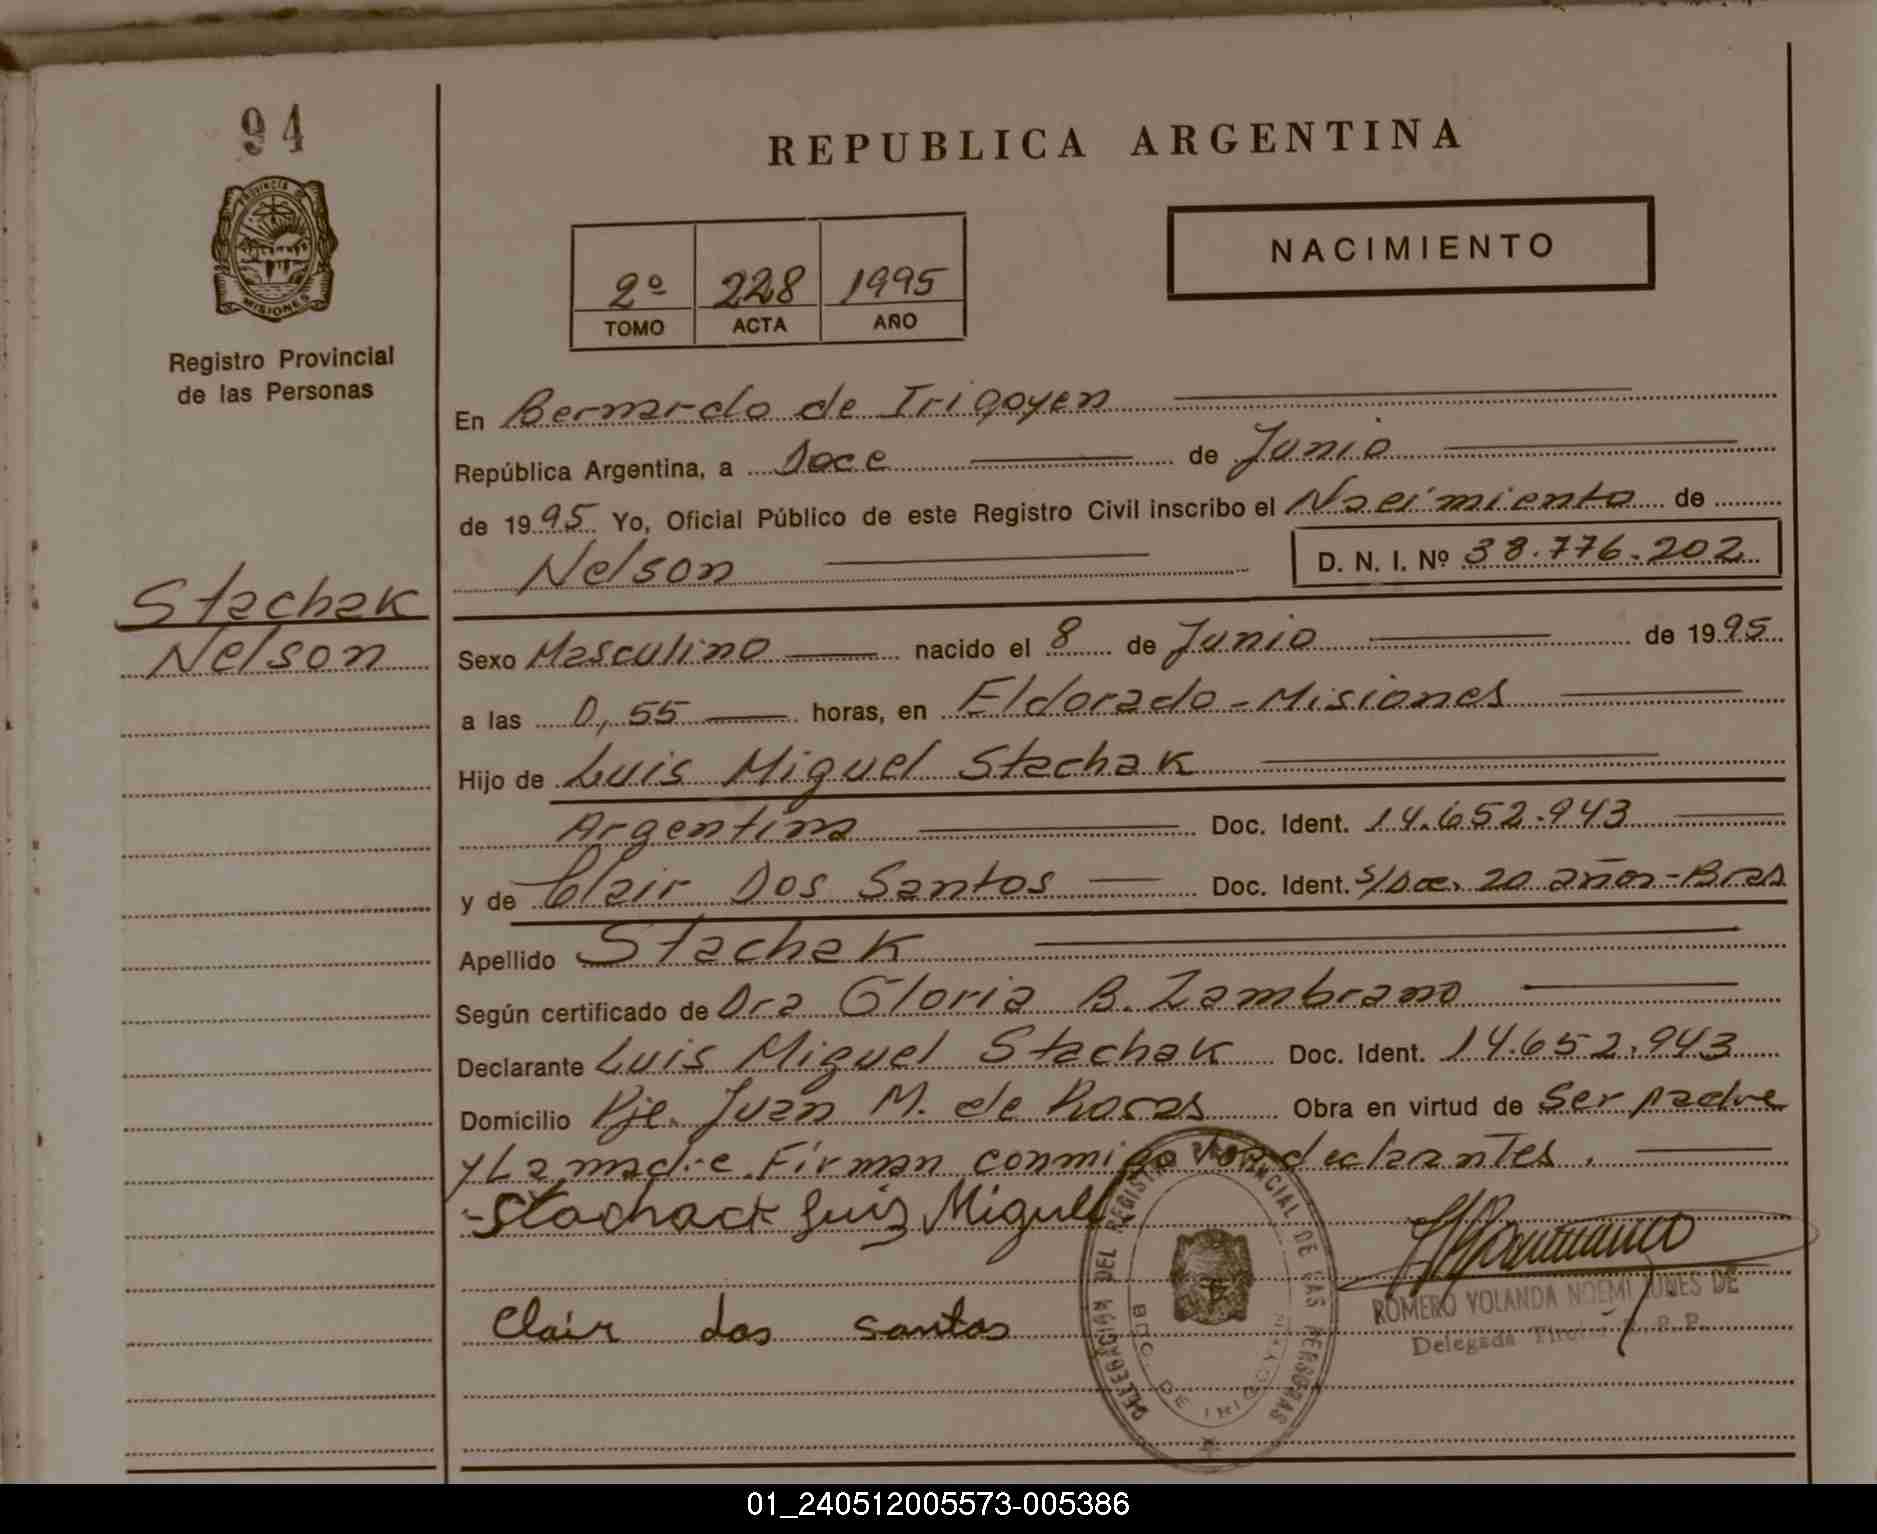 94
PROVINCIA DE
MISIONES
Registro Provincial
de las Personas
Stachak
Nelson
REPUBLICA ARGENTINA
NACIMIENTO
2º 228 1995
TOMO ACTA AÑO
En Bernardo de Irigoyen
República Argentina, a Doce de Junio
de 1995 Yo, Oficial Público de este Registro Civil inscribo el Nacimiento de
Nelson D. N. I. Nº 38.776.202
Sexo Masculino nacido el 8 de Junio de 1995
a las 0,55 horas, en Eldorado - Misiones
Hijo de Luis Miguel Stachak
Argentina Doc. Ident. 14.652.943
y de Clair Dos Santos Doc. Ident. s/Doc. 20 años - Bras
Apellido Stachak
Según certificado de Dra Gloria B. Zambrano
Declarante Luis Miguel Stachak Doc. Ident. 14.652.943
Domicilio Pje. Juan M. de Rosas Obra en virtud de Ser padre
y La madre. Firman conmigo los declarantes.
Stachack Luis Miguel
Clair dos santos
DELEGACIÓN DEL REGISTRO PROVINCIAL DE LAS PERSONAS
BDO. DE IRIGOYEN
ROMERO YOLANDA NOEMI DE
Delegada Titular R. P.
01_240512005573-005386